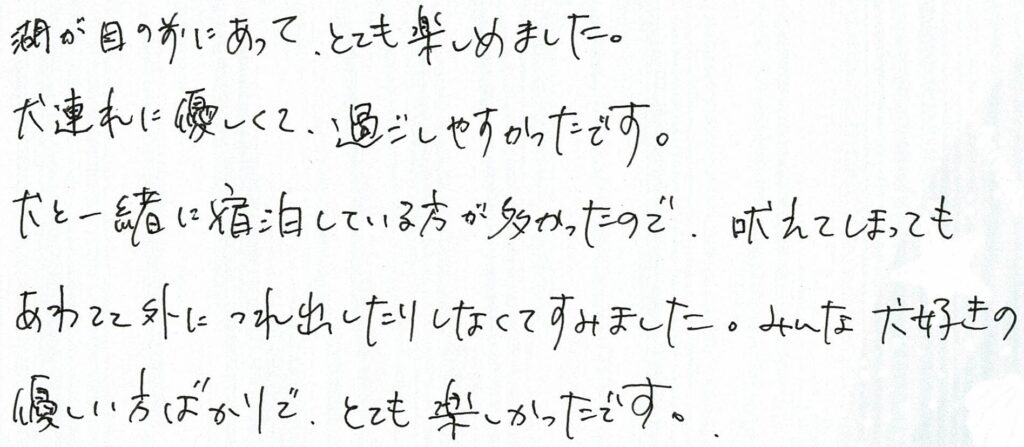 湖が目の前にあって、とても楽しめました。
犬連れに優しくて、過ごしやすかったです。
犬と一緒に宿泊している方が多かったので、吠えてしまっても
あわてて外につれ出したりしなくてすみました。みんな犬好きの
優しい方ばかりで、とても楽しかったです。